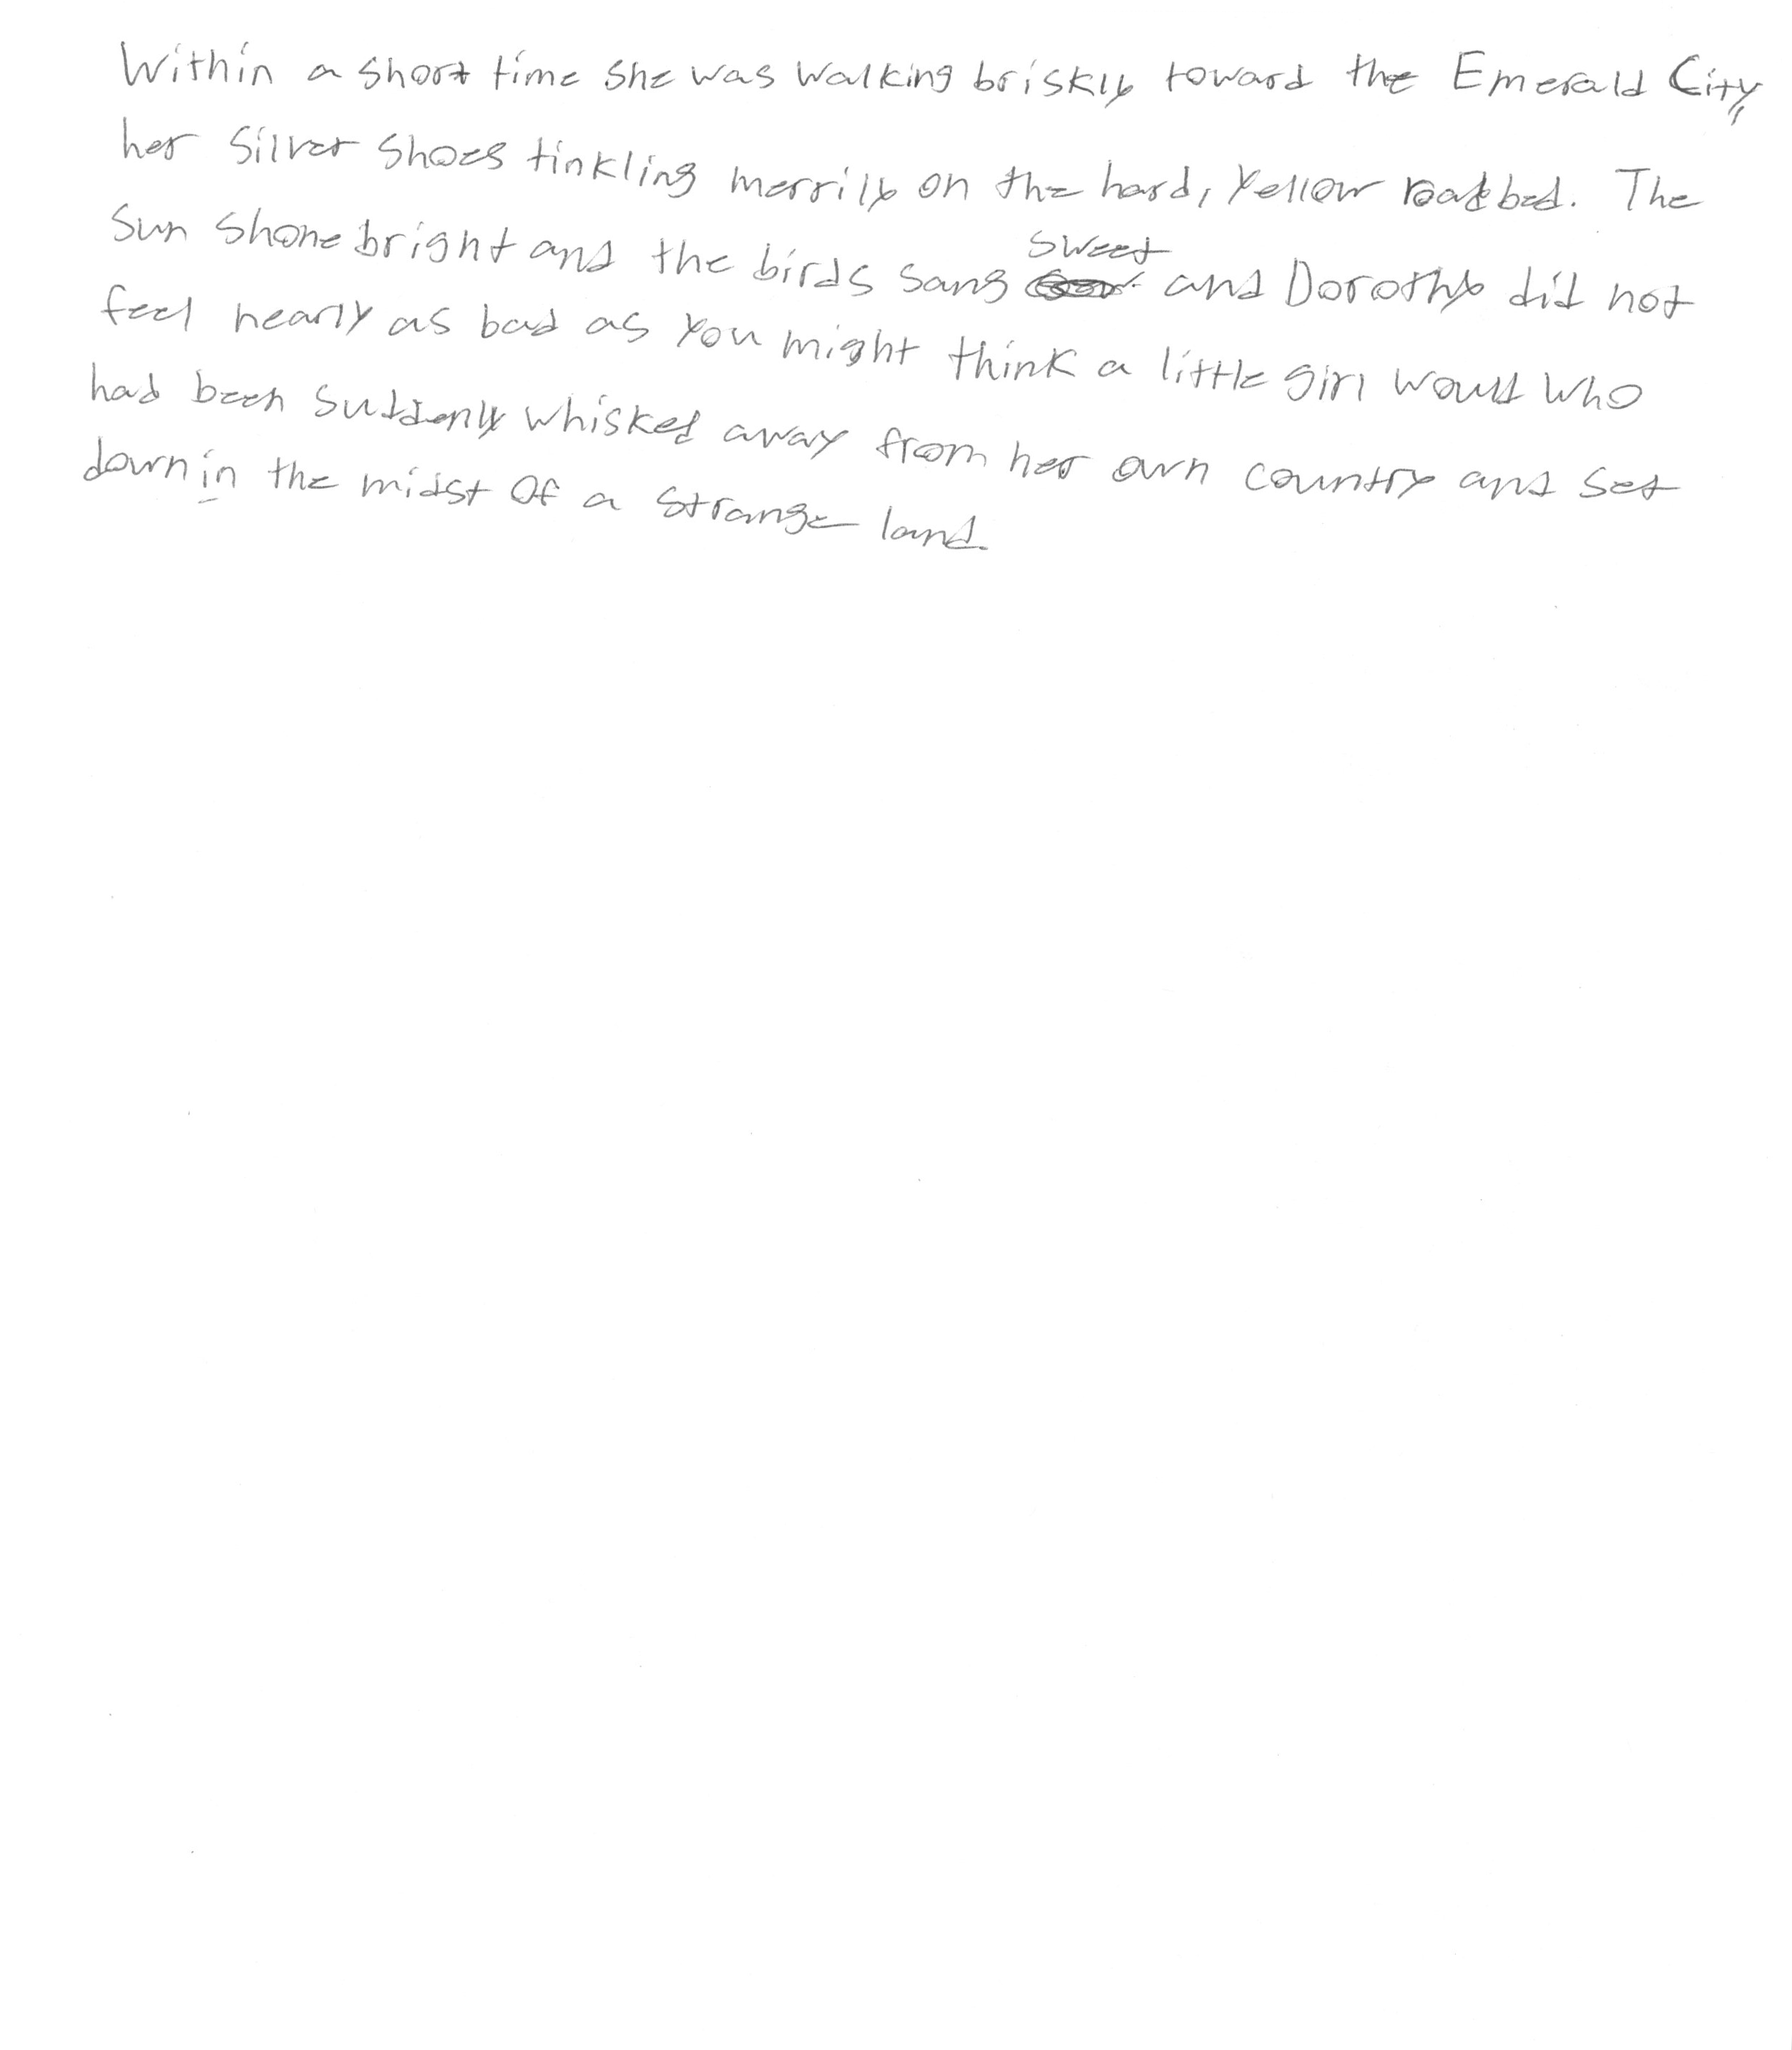 Within a short time she was walking briskly toward the Emerald City,
her Silver Shoes tinkling merrily on the hard, yellow roadbed. The
sun shone bright and the birds sang sweet and Dorothy did not
feel nearly as bad as you might think a little girl would who
had been suddenly whisked away from her own country and set
down in the midst of a strange land.